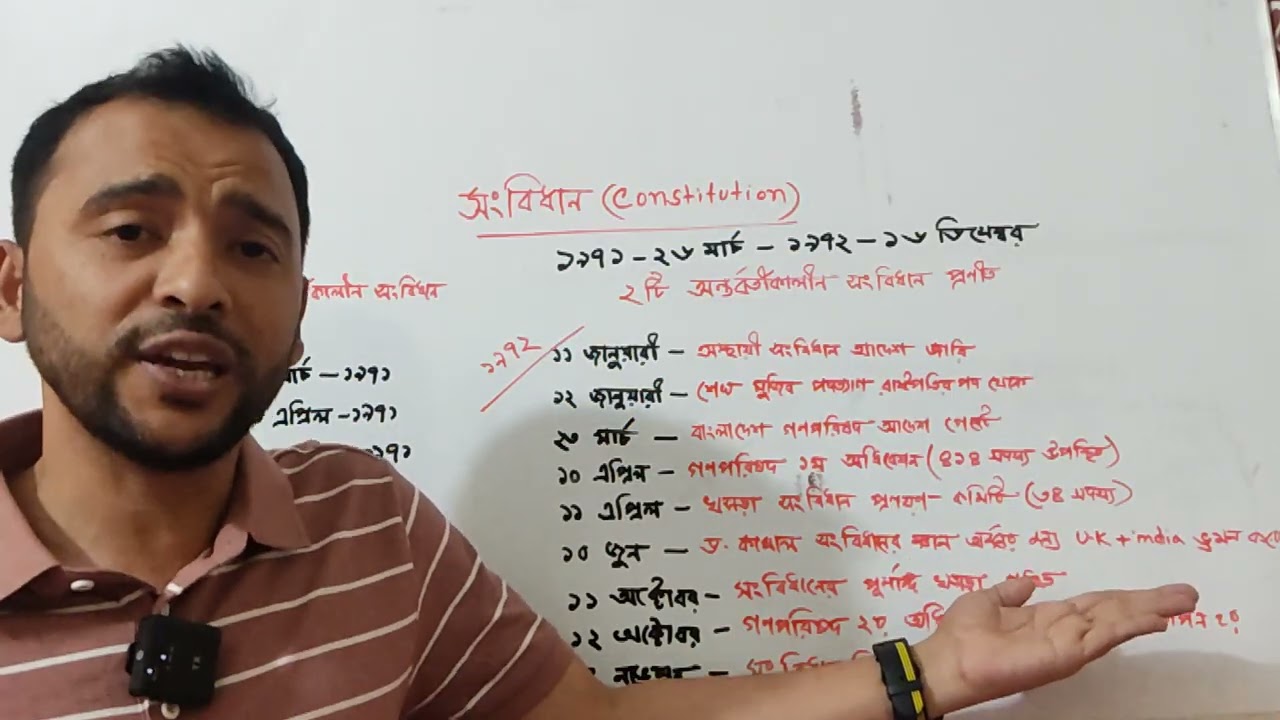 সংবিধান (Constitution)
১৯৭১ - ২৬ মার্চ - ১৯৭২ - ১৬ ডিসেম্বর
২টি অন্তর্বর্তীকালীন সংবিধান প্রণীত
কালীন সংবিধান
মার্চ - ১৯৭১
এপ্রিল - ১৯৭১
৯৭১
১৯৭২
১১ জানুয়ারী - অস্থায়ী সংবিধান আদেশ জারি
১২ জানুয়ারী - শেখ মুজিব
২৩ মার্চ - বাংলাদেশ গণপরিষদ আদেশ
১০ এপ্রিল - গণপরিষদ ১ম অধিবেশন (৪১৪ সদস্য উপস্থিত)
১১ এপ্রিল - খসড়া সংবিধান প্রণয়ণ কমিটি (৩৪ সদস্য)
১০ জুন - ড. কামাল সংবিধানের জন্য UK + india ভ্রমন
১১ অক্টোবর - সংবিধানের পূর্ণাঙ্গ খসড়া
১২ অক্টোবর - গণপরিষদ ২য়